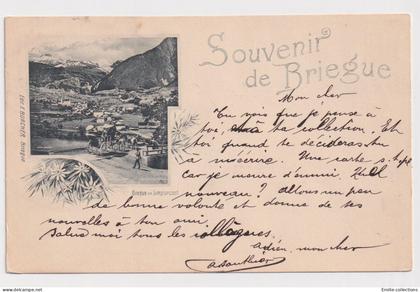 Souvenir
de Briegue
Mon cher
Tu vois que je pense à
toi, ta collection. Et
toi quand te décideras tu
à m'écrire. Une carte s.t.pl
car je meurs d'ennui.
nouveau? Allons un peu
de bonne volonté et donne de ses
nouvelles à ton ami
Salue moi tous les collègues.
Adieu, mon cher